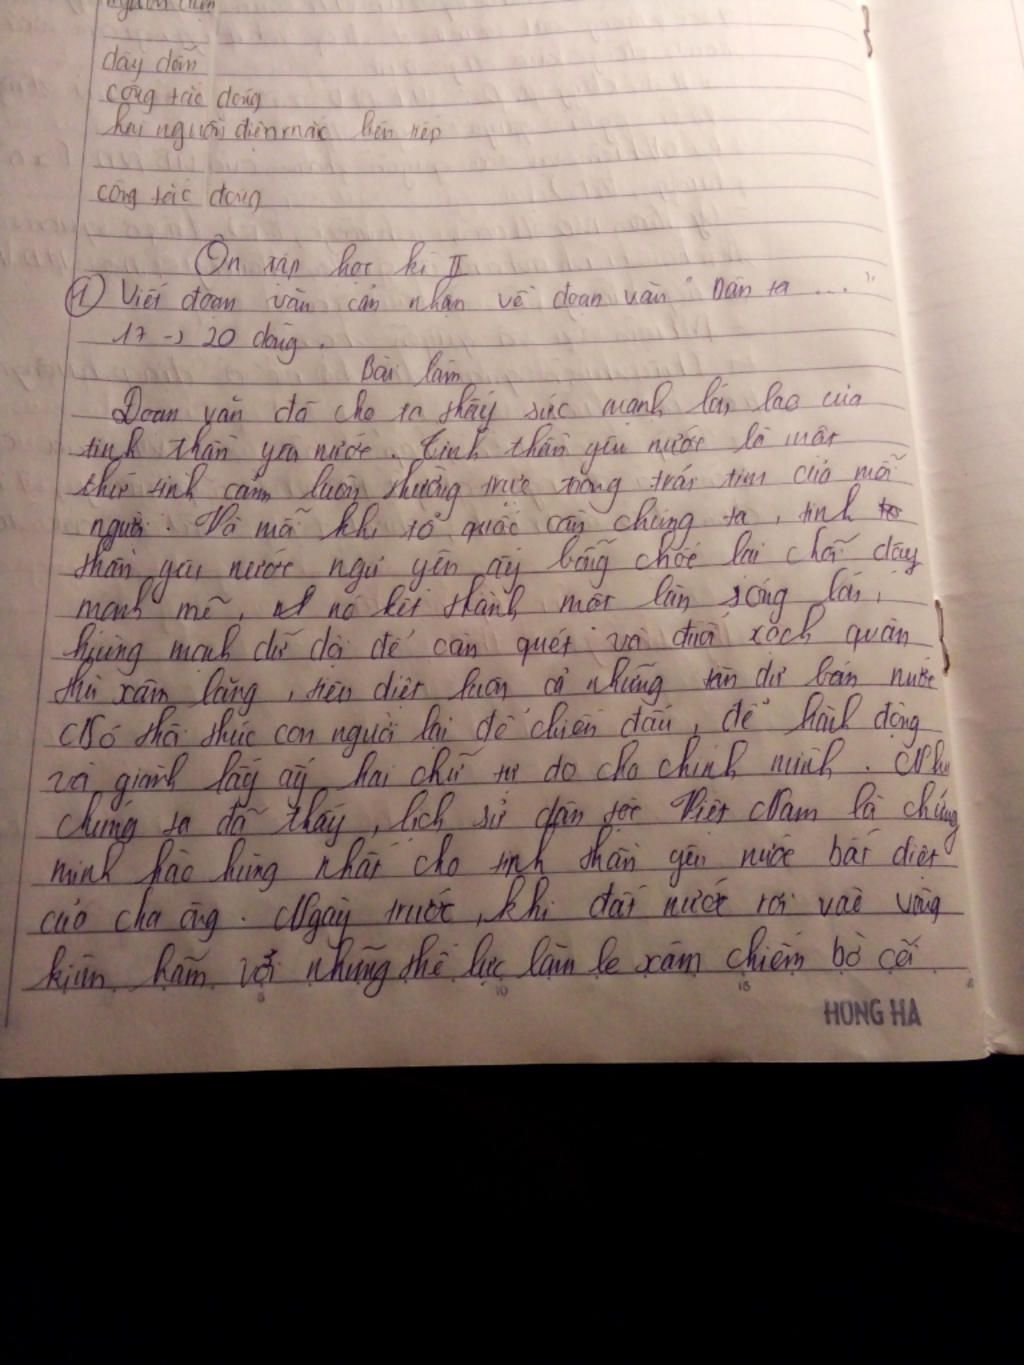 nguồn điện
dây dẫn
công tắc đóng
hai nguồn điện mắc liên tiếp
công tắc đóng
Ôn tập học kì II
① Viết đoạn văn cảm nhận về đoạn văn "Dân ta ..."
17 -> 20 dòng.
Bài làm
Đoạn văn đã cho ta thấy sức mạnh lớn lao của
tinh thần yêu nước. Tinh thần yêu nước là một
thứ tình cảm luôn thường trực trong trái tim của mỗi
người. Và mỗi khi tổ quốc cần chúng ta, tinh
thần yêu nước ngủ yên ấy bỗng chốc lại chỗi dậy
mạnh mẽ, nó kết thành một làn sóng lớn,
hùng mạnh dữ dội để càn quét và đuổi xách quân
thù xâm lăng, tiêu diệt luôn cả những tàn dư bán nước
Nó thôi thúc con người lại để chiến đấu, để hành động
và giành lấy ấy hai chữ tự do cho chính mình. Như
chúng ta đã thấy, lịch sử dân tộc Việt Nam là chứng
minh hào hùng nhất cho tinh thần yêu nước bất diệt
của cha ông. Ngày trước, khi đất nước rơi vào vòng
kiềm hãm với những thế lực lăm le xâm chiếm bờ cõi
5 10 15
HONG HA